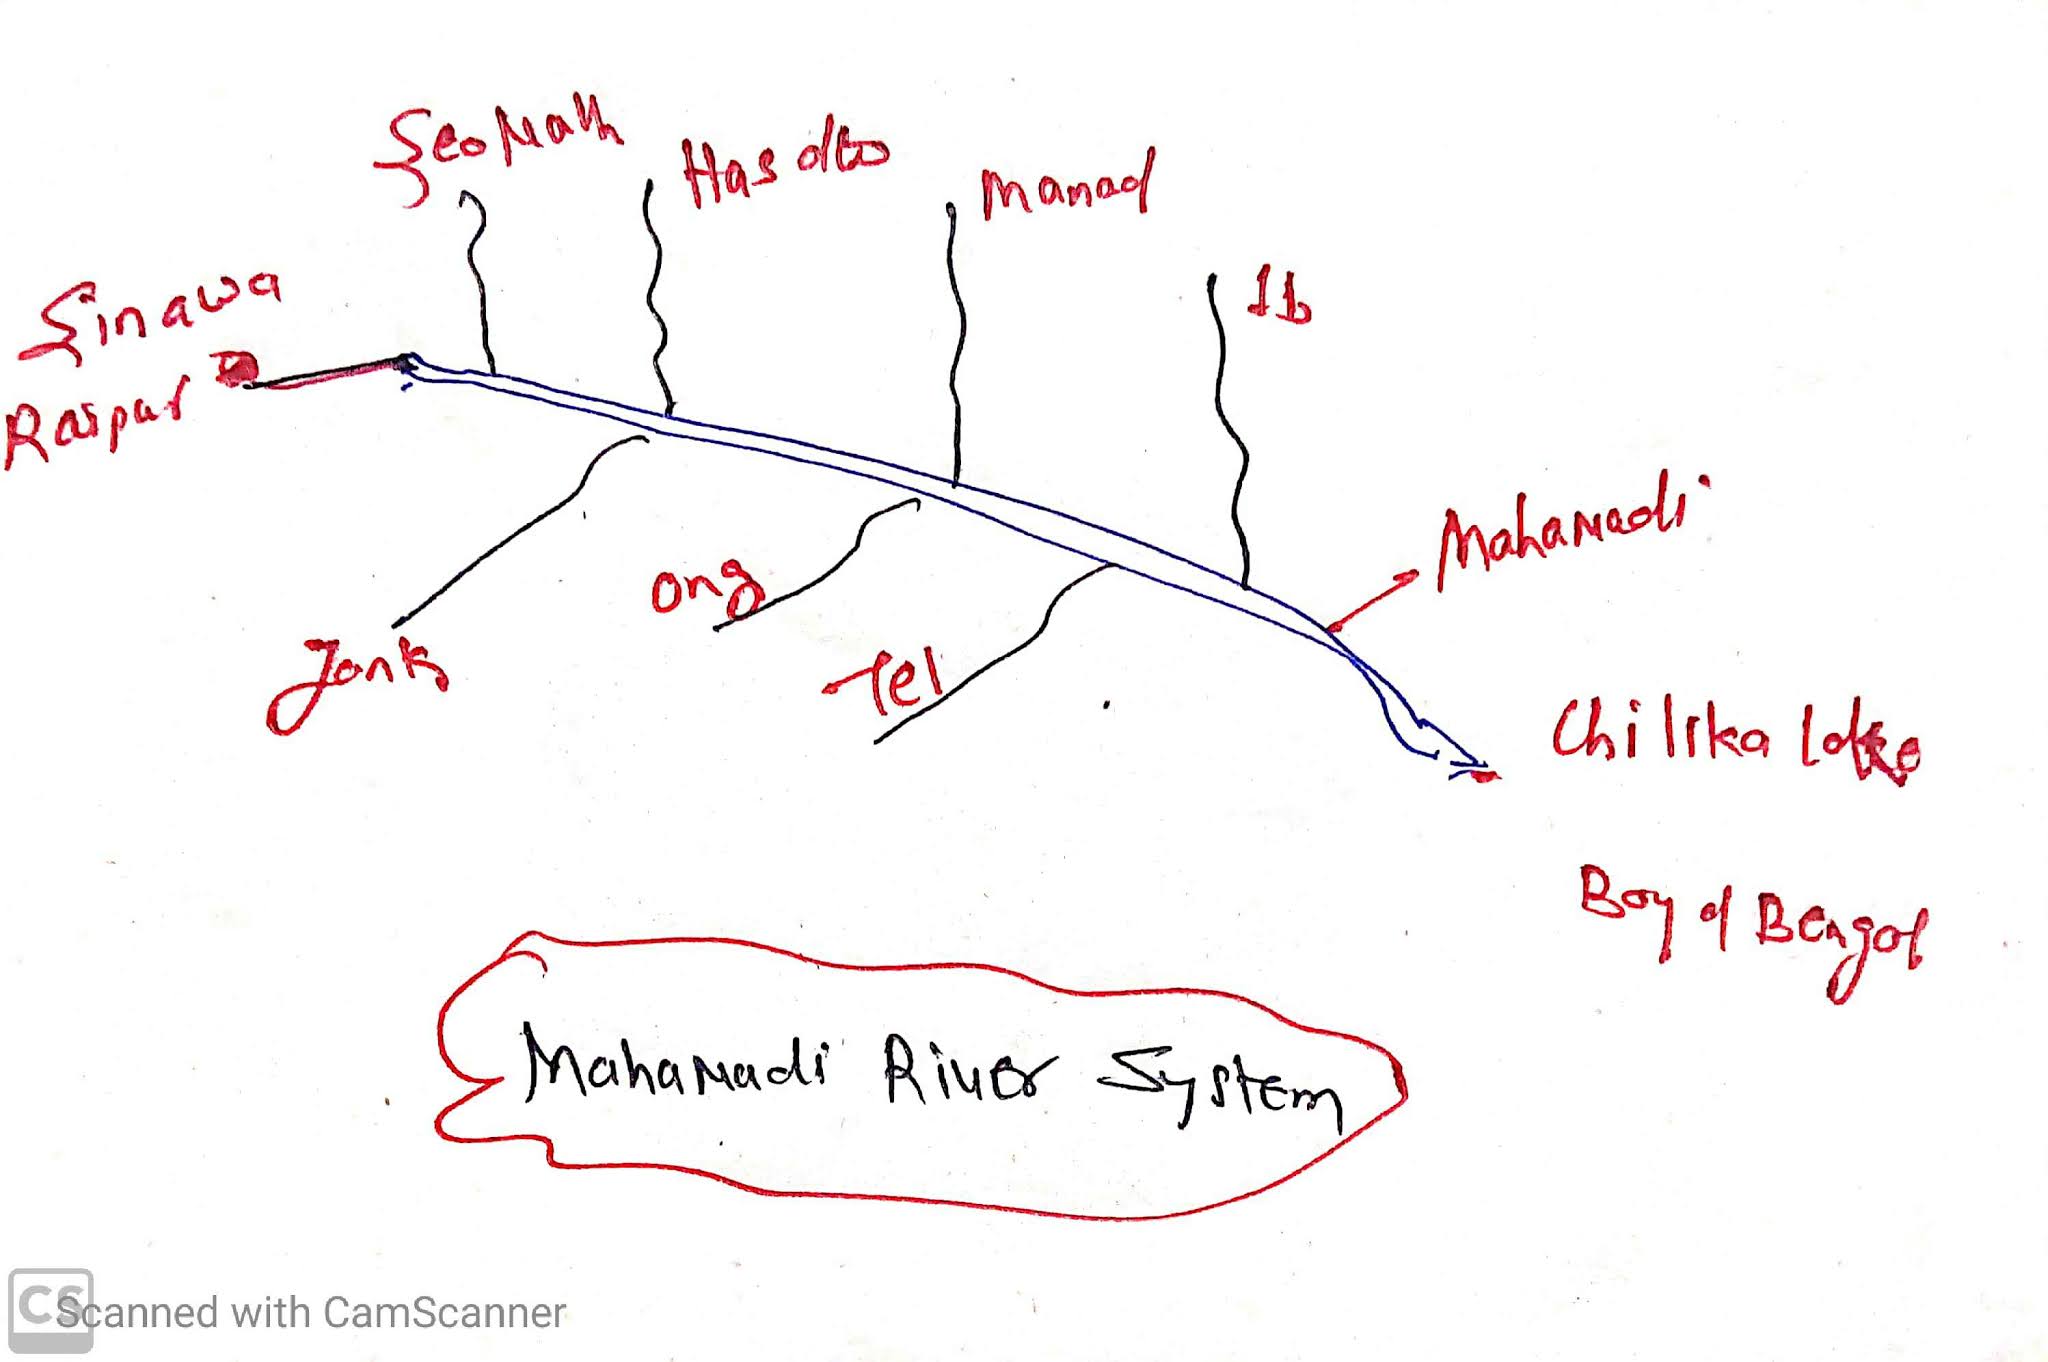 SeoNath
Hasdeo
Manad
Ib
Sinawa
Raipur
Mahanadi
Jonk
ong
Tel
Chilika lake
Bay of Bengal
Mahanadi River System
CS
Scanned with CamScanner